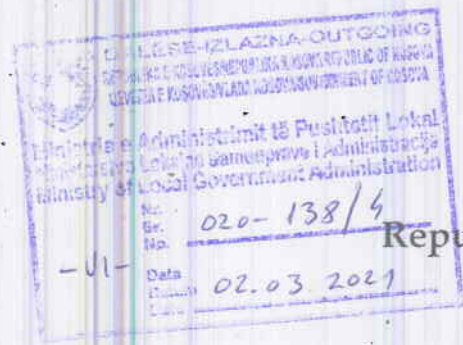 DALËSE-IZLAZNA-OUTGOING
REPUBLIKA E KOSOVËS/REPUBLIKA KOSOVA/REPUBLIC OF KOSOVA
QEVERIA E KOSOVËS/VLADA KOSOVA/GOVERNMENT OF KOSOVA
Ministria e Administrimit të Pushtetit Lokal
Lokalne Samouprave i Administracije
Ministry of Local Government Administration
Nr.
Br. 020-138/4
No.
Repu
-VI-
Data
02.03.2021